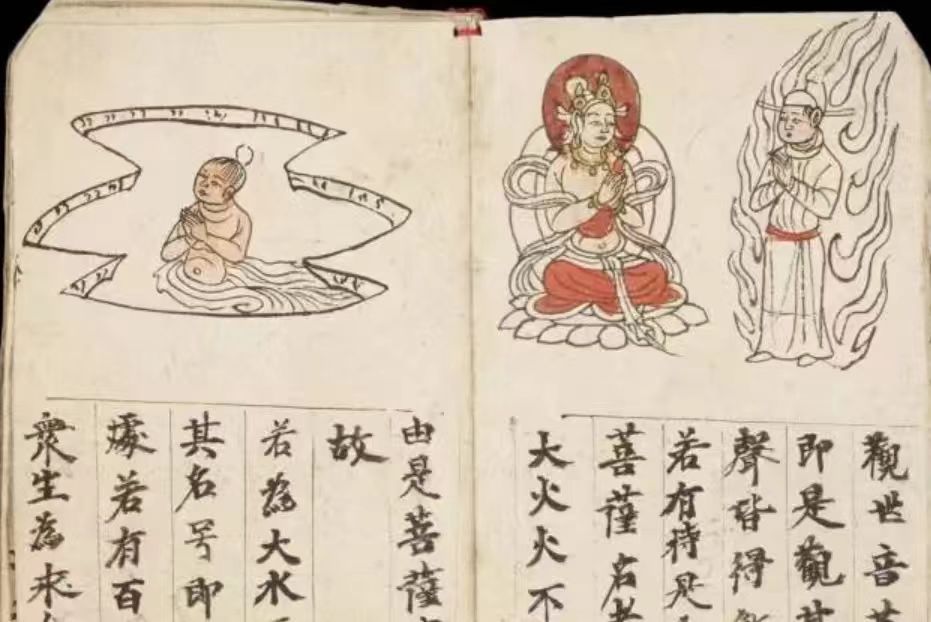 觀世音
即是觀其
聲皆得
若有持是
菩薩名者
大火火不
由是菩薩
故
若為大水
其名号即
處若有百
衆生為求